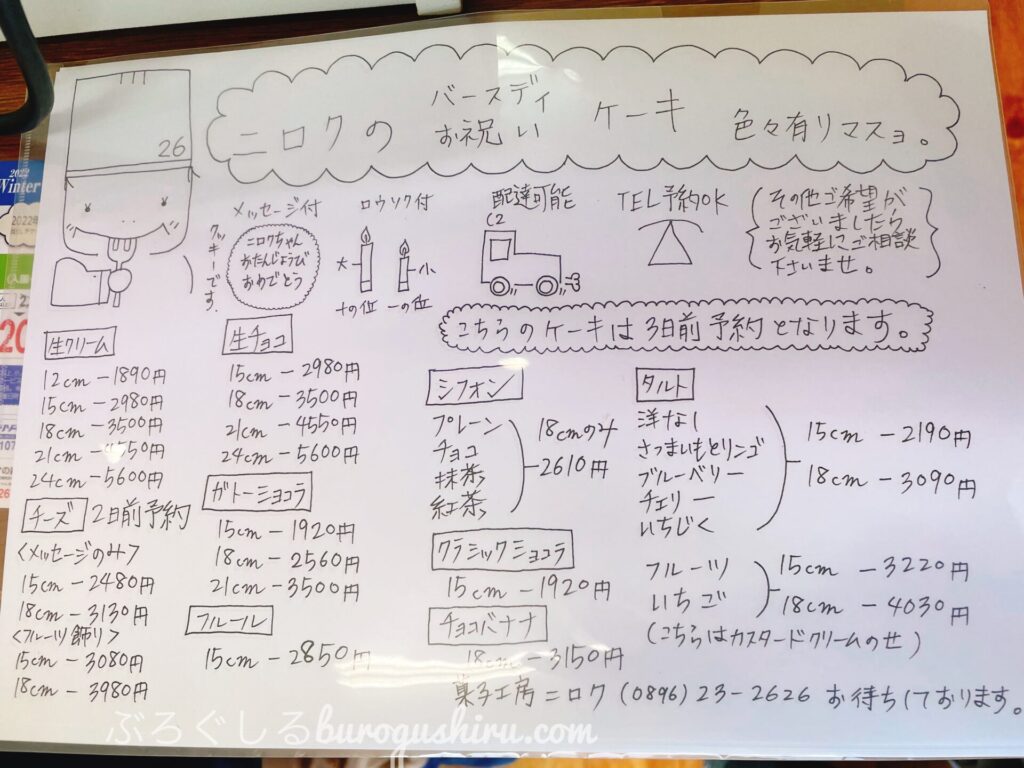 ニロクの バースディ お祝い ケーキ 色々有リマスョ。
26
クッキーです。
メッセージ付
ニロクちゃん
おたんじょうび
おめでとう
ロウソク付
大 小
十の位 一の位
配達可能
TEL予約OK
その他ご希望が
ございましたら
お気軽にご相談
下さいませ。
こちらのケーキは3日前予約となります。
生クリーム
12cm-1890円
15cm-2980円
18cm-3500円
21cm-4550円
24cm-5600円
チーズ 2日前予約
<メッセージのみ>
15cm-2480円
18cm-3130円
<フルーツ飾り>
15cm-3080円
18cm-3980円
生チョコ
15cm-2980円
18cm-3500円
21cm-4550円
24cm-5600円
ガトーショコラ
15cm-1920円
18cm-2560円
21cm-3500円
フルール
15cm-2850円
シフォン
プレーン
チョコ
抹茶
紅茶
18cmのみ
-2610円
クラシックショコラ
15cm-1920円
チョコバナナ
18cm-3150円
タルト
洋なし
さつまいもとリンゴ
ブルーベリー
チェリー
いちじく
15cm-2190円
18cm-3090円
フルーツ
いちご
15cm-3220円
18cm-4030円
(こちらはカスタードクリームのせ)
菓子工房ニロク (0896) 23-2626 お待ちしております。
2022
Winter
ぶろぐしるburogushiru.com